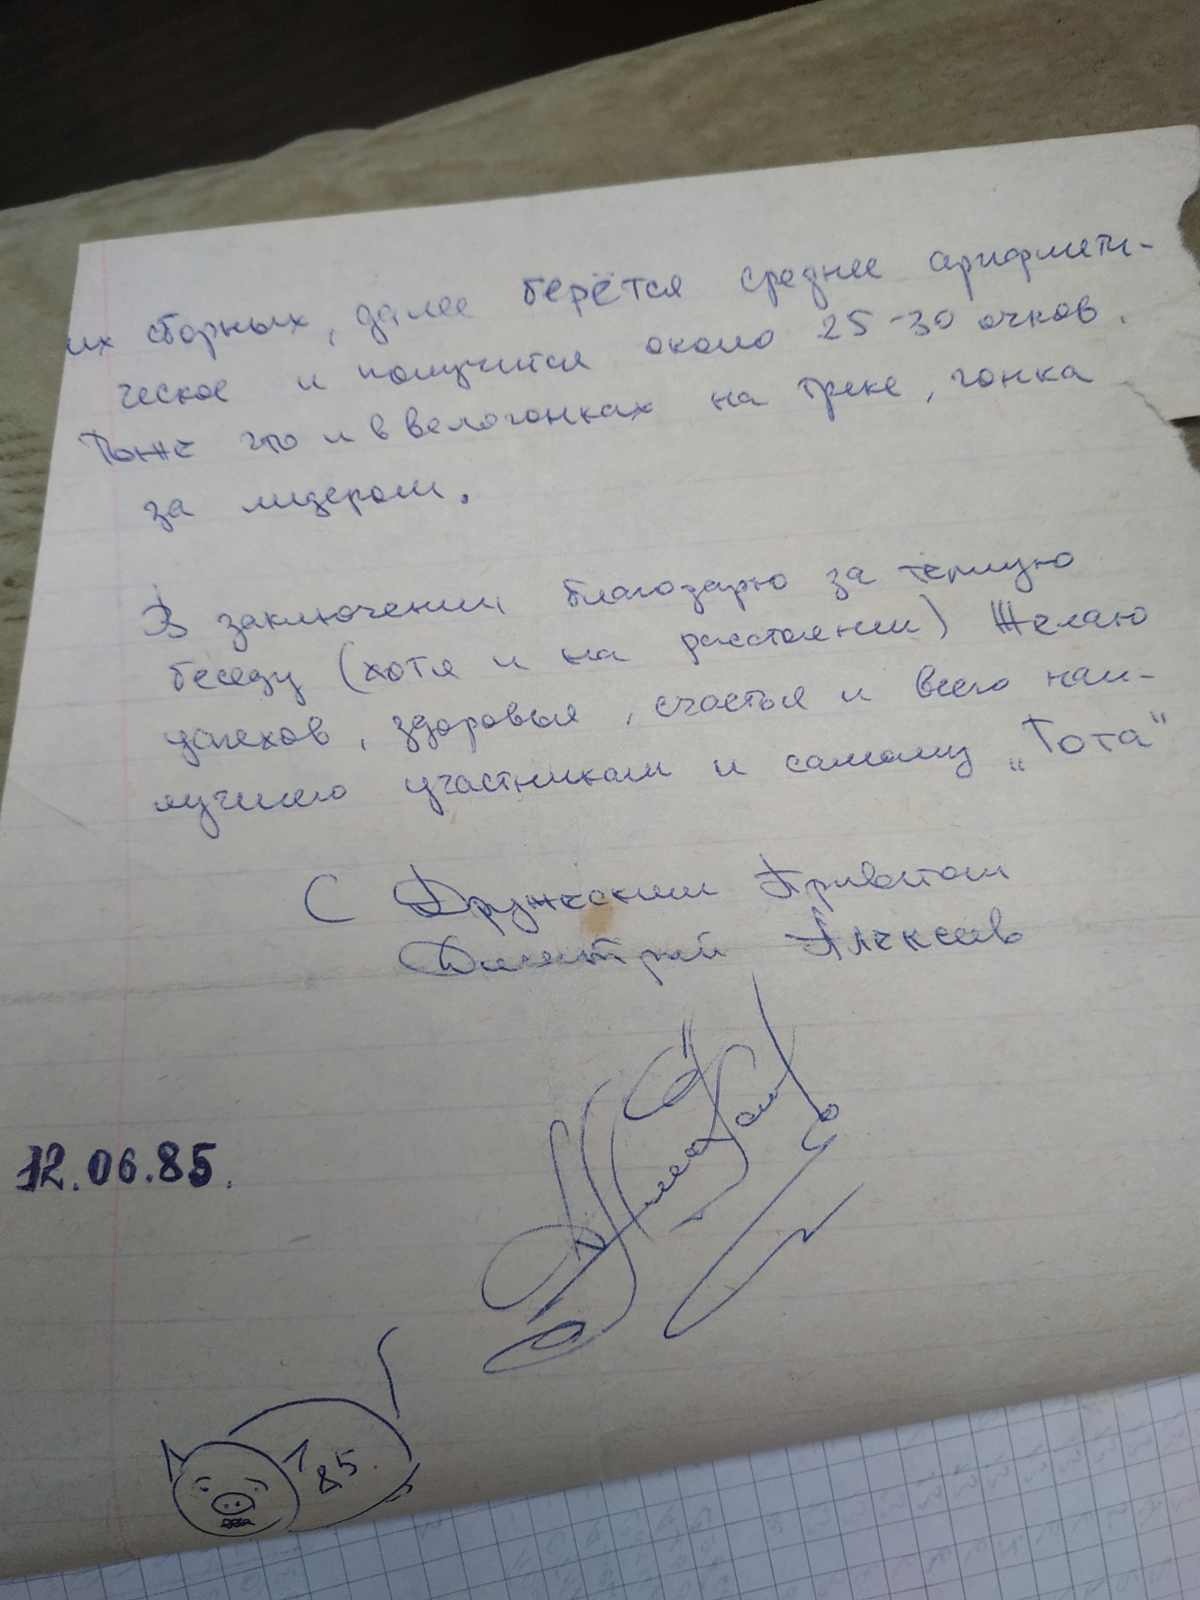 их сборных, далее берётся среднее арифмети-
ческое и получится около 25-30 очков.
Тоже это и в велогонках на треке, гонка
за лидером.
В заключении благодарю за тёплую
беседу (хотя и на расстоянии) Желаю
успехов, здоровья, счастья и всего наи-
лучшего участникам и самому „Тота“
С Дружеским Приветом
Дмитрий Алексеев
12.06.85.
85.